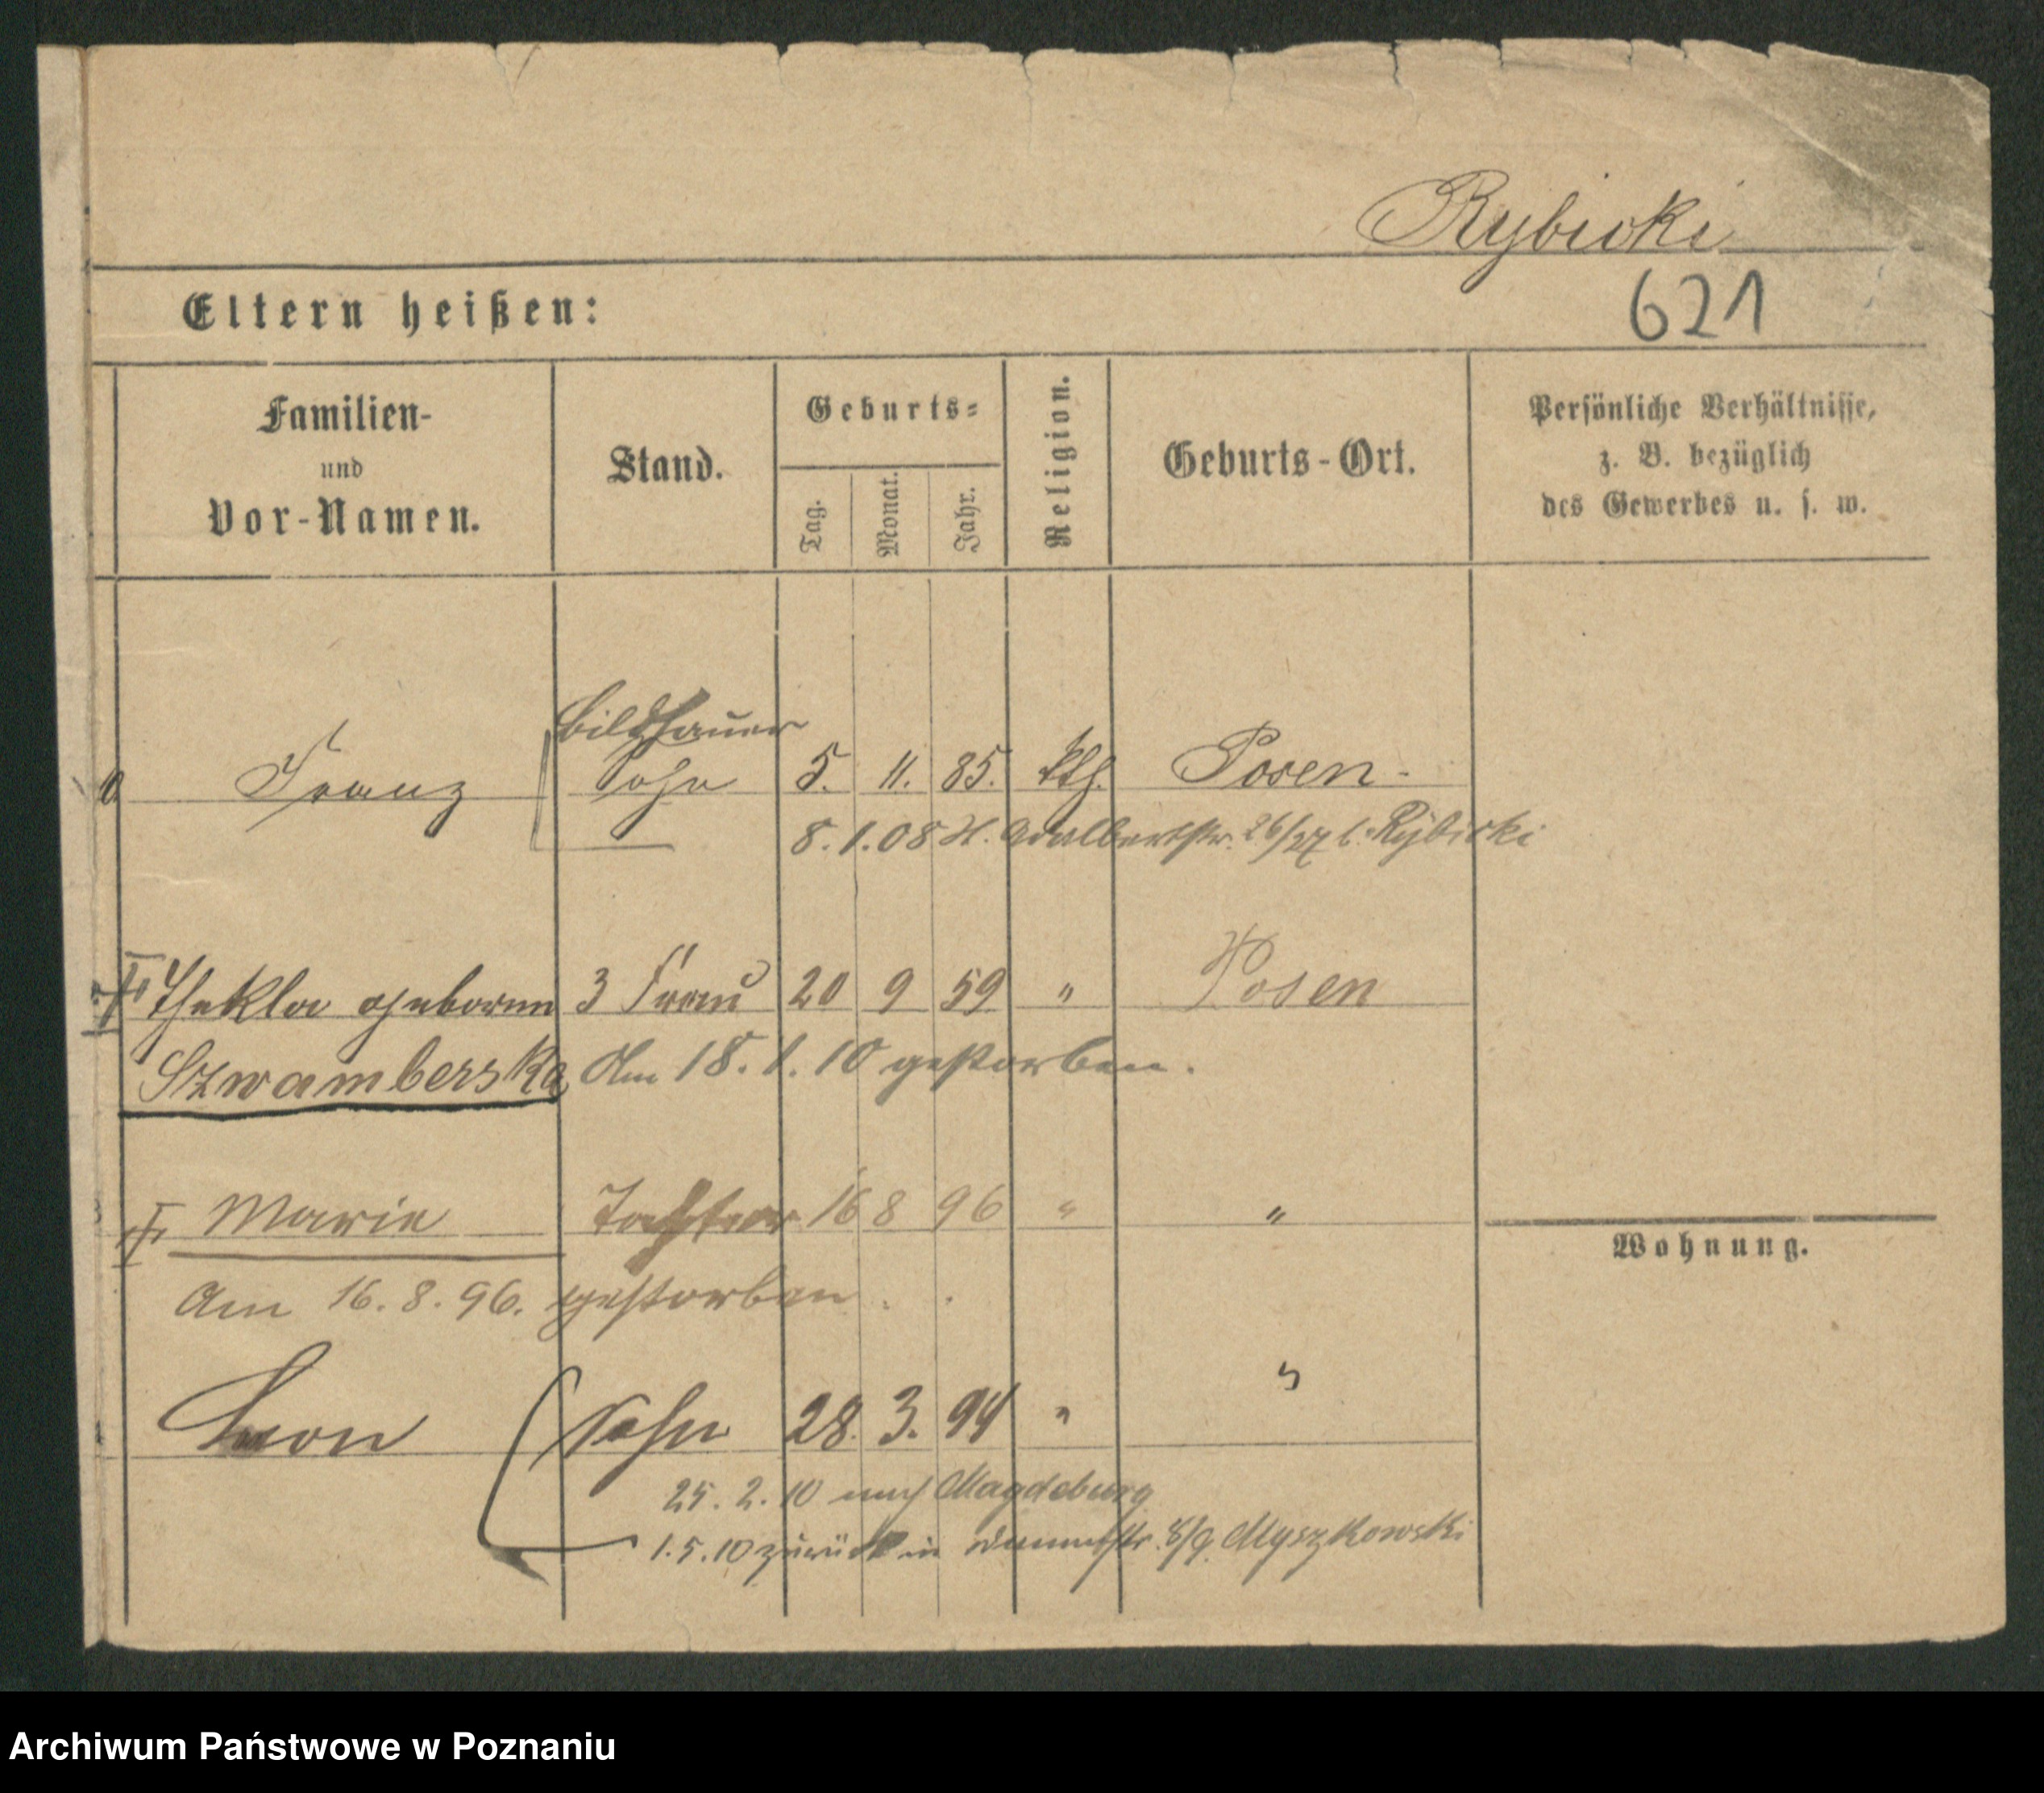 Rybicki
621
Eltern heißen:
Familien-
und
Vor-Namen.
Stand.
Geburts-
Tag.
Monat.
Jahr.
Religion.
Geburts-Ort.
Persönliche Verhältnisse,
z. B. bezüglich
des Gewerbes u. s. w.
Bildhauer
Franz Sohn 5. 11. 85. kth. Posen.
8.1.08 H. Adalbertstr. 26/27 b. Rybicki
Thekla geborene 3 Frau 20 9 59 " Posen
Szwamberska Am 18.1.10 gestorben.
Marie Tochter 16 8 96 " "
Am 16.8.96. gestorben.
Leon Sohn 28. 3. 94 " "
25.2.10 nach Magdeburg
1.5.10 zurück in 8/9. Myszkowski
Wohnung.
Archiwum Państwowe w Poznaniu